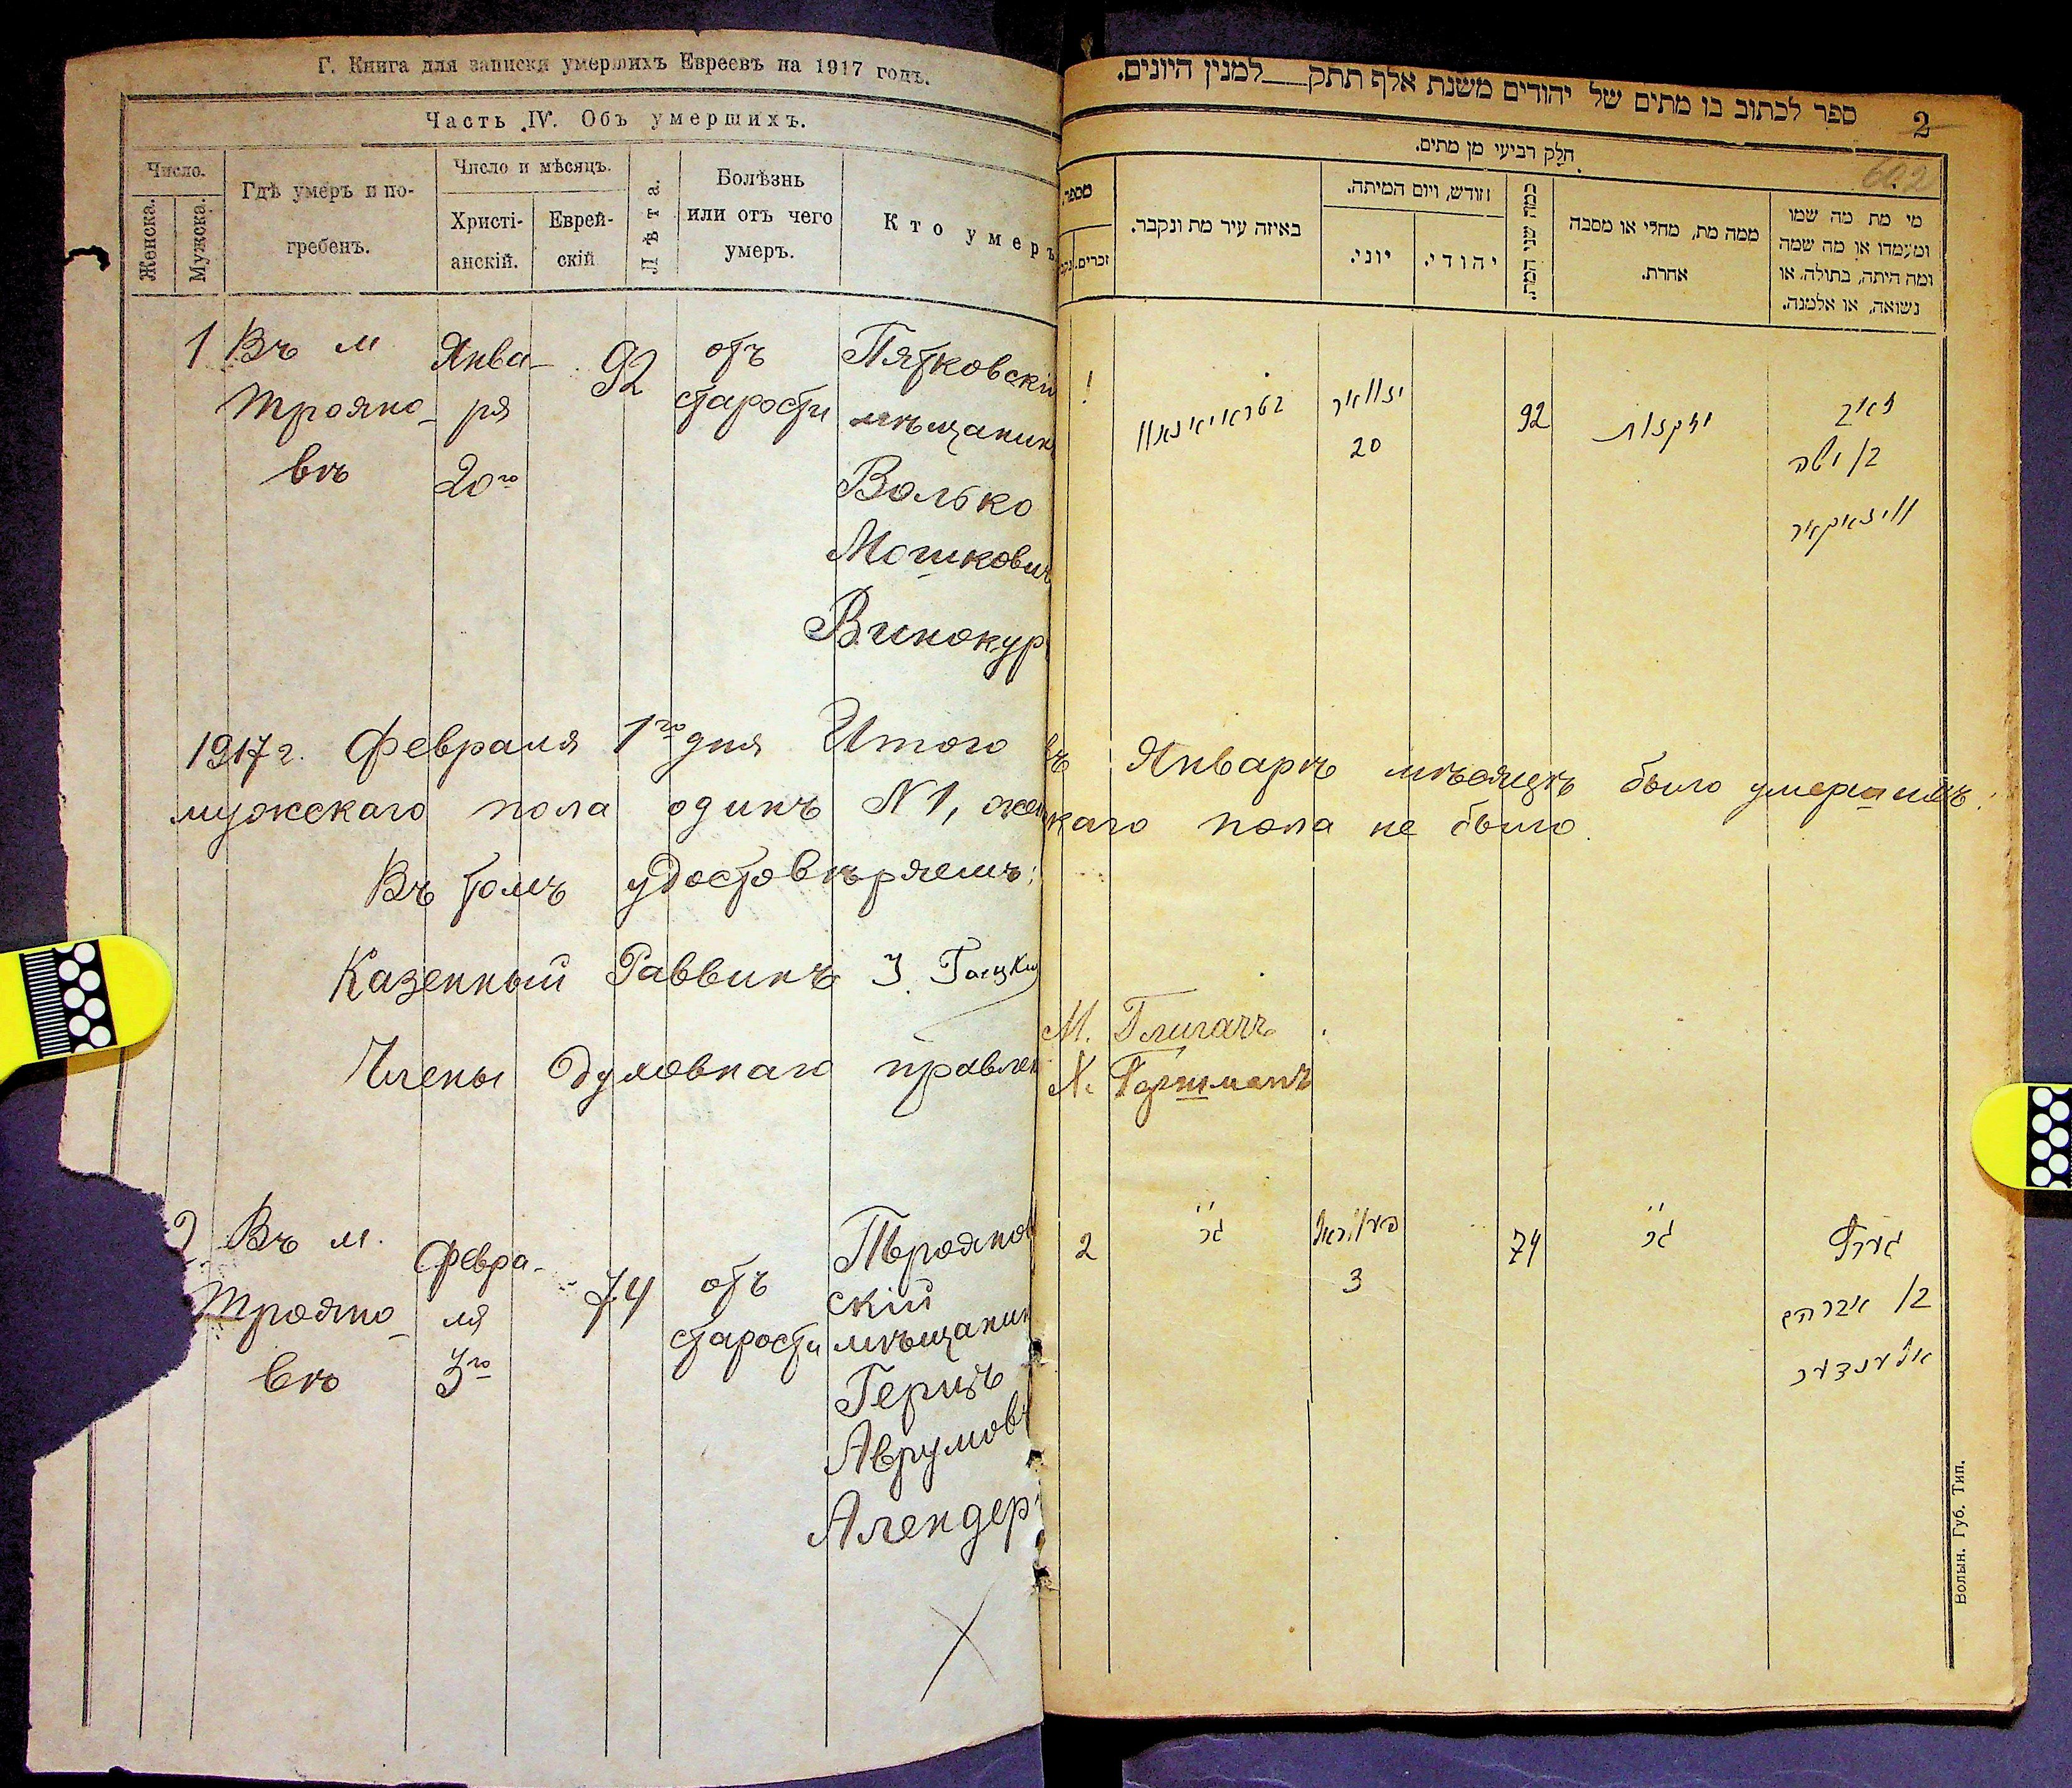 Г. Книга для записки умершихъ Евреевъ на 1917 годъ.
Часть IV. Объ умершихъ.
Число.
Женска.
Мужска.
Гдѣ умеръ и по-
гребенъ.
Число и мѣсяцъ.
Христі-
анскій.
Еврей-
скій
Лѣта.
Болѣзнь
или отъ чего
умеръ.
Кто умеръ
1
Въ м
Трояно-
вѣ
Янва-
ря
20го
92
отъ
старости
Пятковскій
мѣщанин
Волько
Мошкович
Винокур
1917 г. Февраля 1го дня Итого въ Январѣ мѣсяцѣ было умершихъ:
мужскаго пола одинъ №1, женскаго пола не было.
Въ томъ удостовѣряемъ:
Казенный Раввинъ
Члены Духовнаго правлен
М. Глигачъ
Х. Гершманъ
2
Въ м.
Трояно-
вѣ
Февра-
ля
3го
74
отъ
старости
Трояно
скій
мѣщанин
Герцъ
Аврумов
Алендеръ
ספר לכתוב בו מתים של יהודים משנת אלף תתק למנין היונים.
2
602
חלק רביעי מן מתים.
מספר
זכרים.
נקב
באיזה עיר מת ונקבר.
חודש, ויום המיתה.
יוני.
יהודי.
כמה שני המת.
ממה מת, מחלי או מסבה
אחרת.
מי מת מה שמו
ומעמדו או מה שמה
ומה היתה, בתולה, או
נשואה, או אלמנה.
1
בטראיאנאוו
יאנוואר
20
92
מזקנות
זאב
בן משה
ווינאקור
2
פעברואר
3
74
גערץ
בן אברהם
אלענדער
Волын. Губ. Тип.